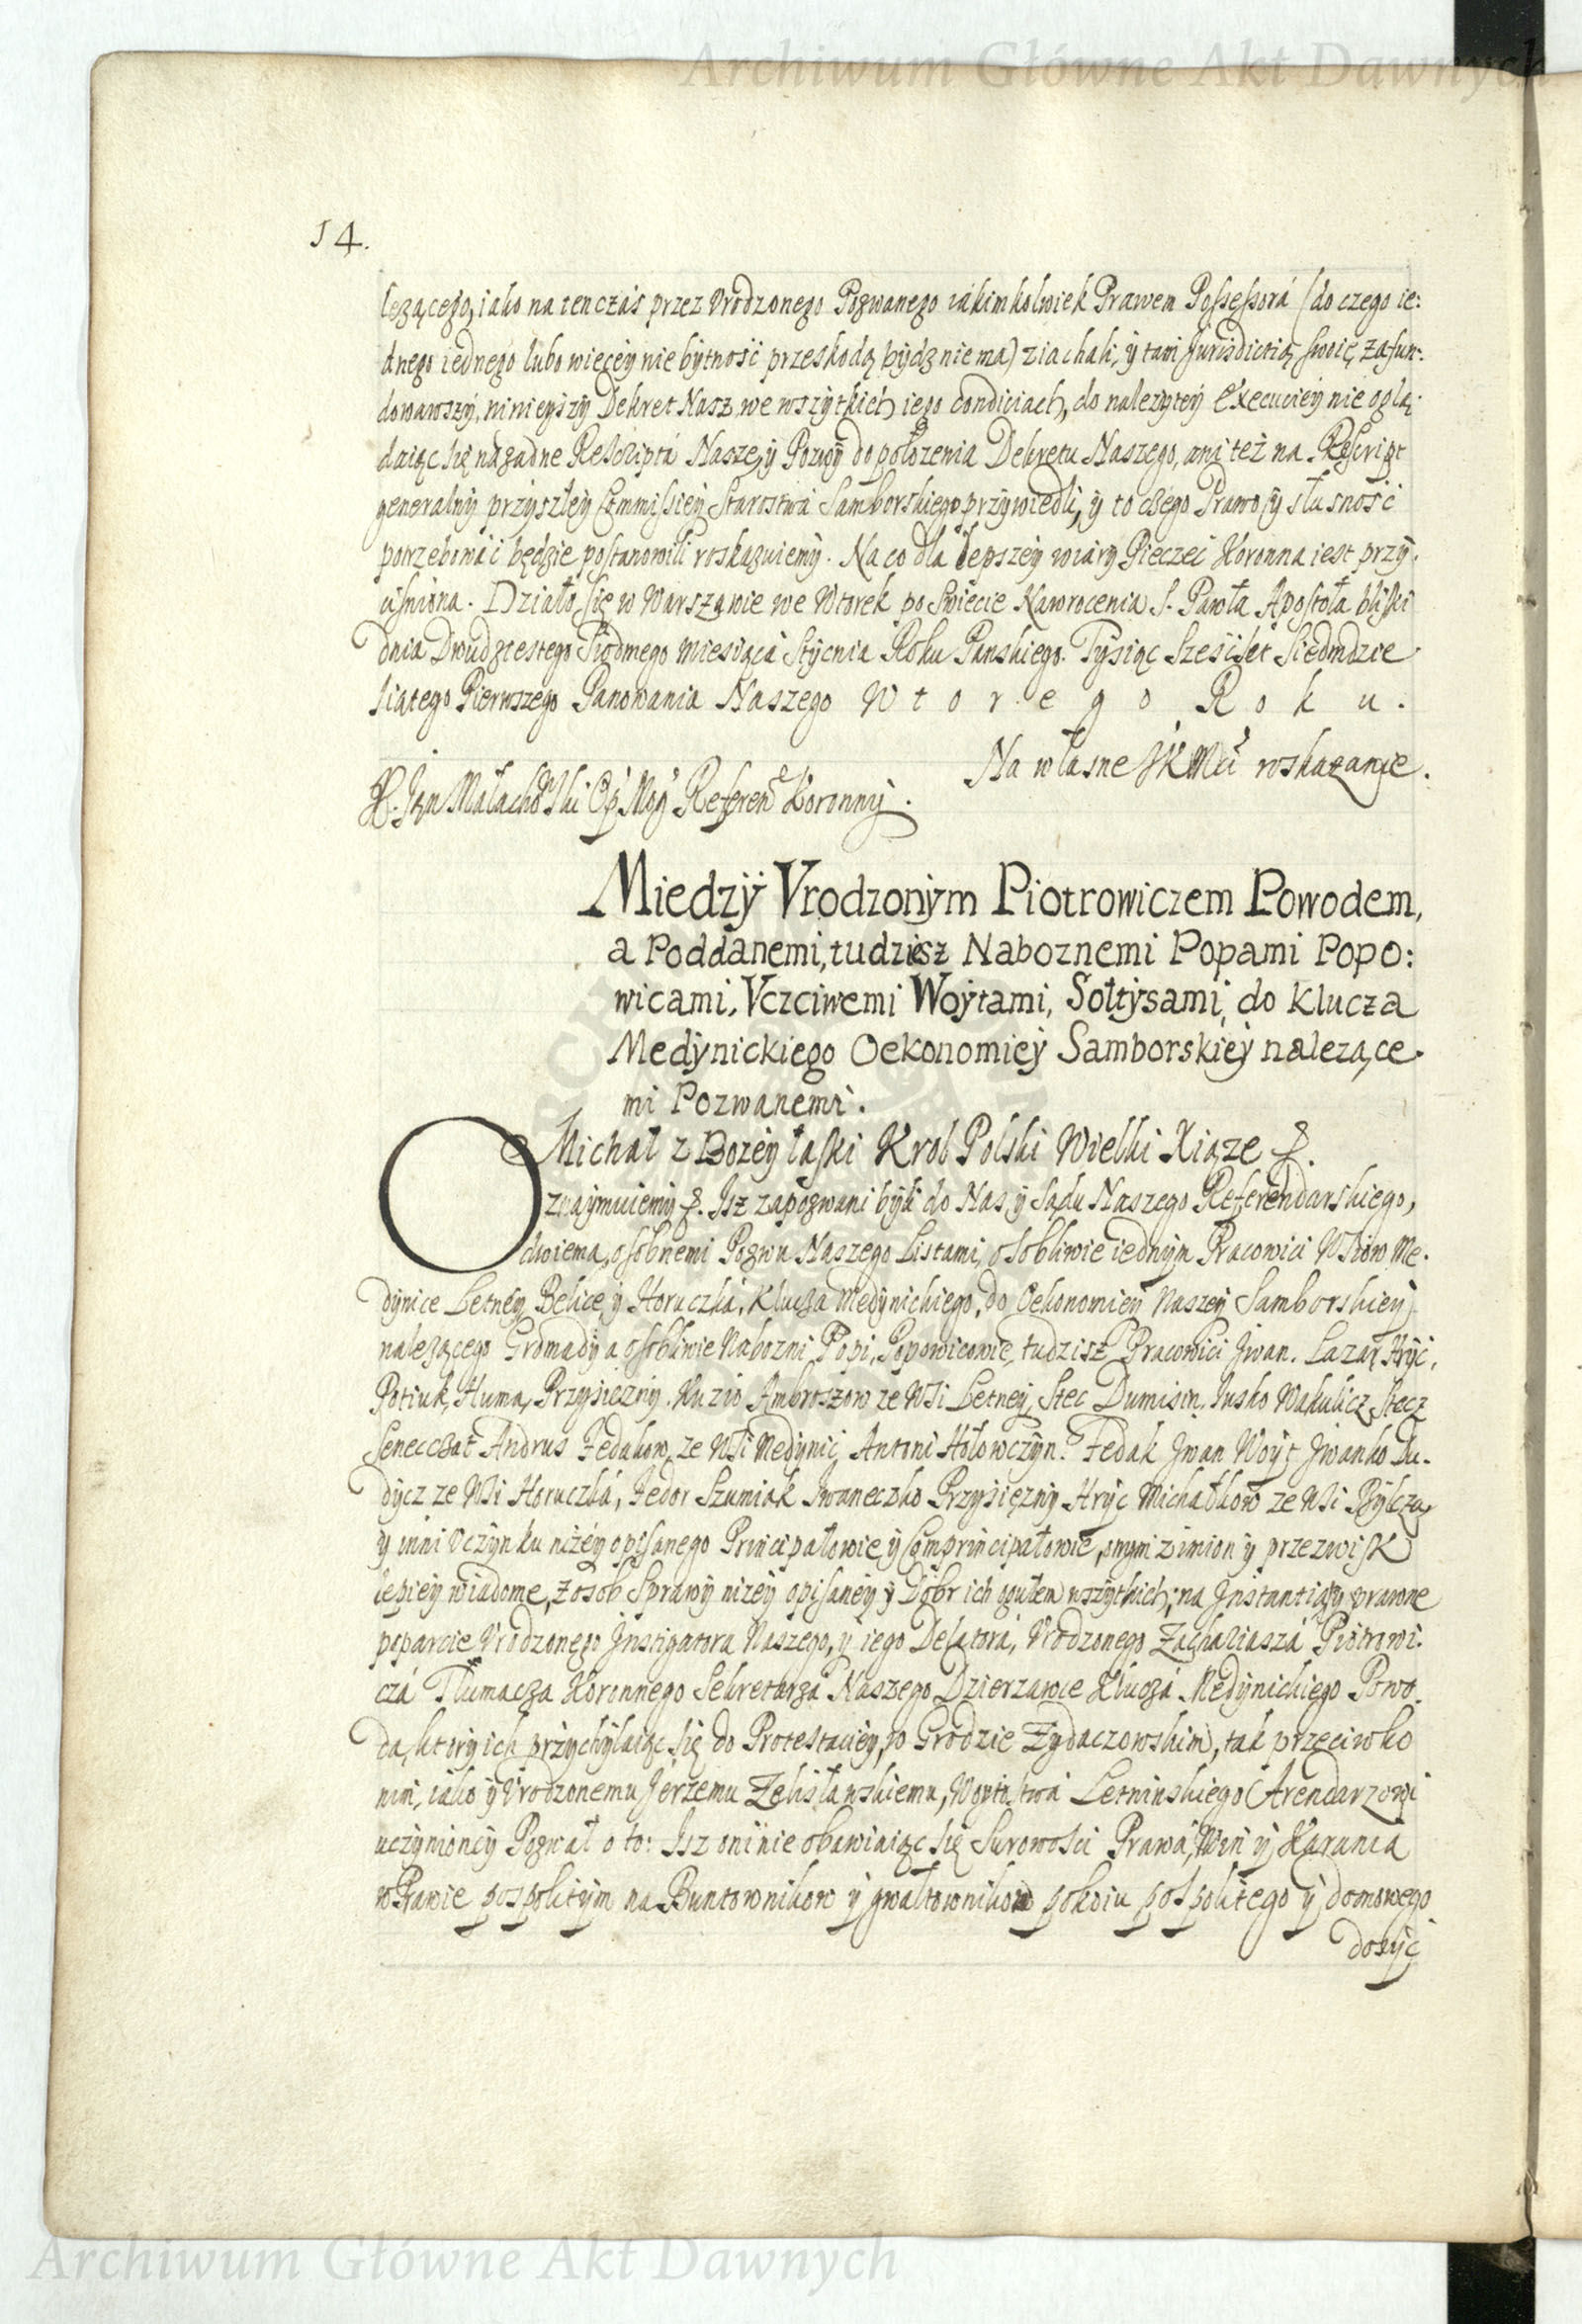 Archiwum Główne Akt Dawnych
14.
lezącego, iako na ten czas przez Vrodzonego Pozwanego iakimkolwiek Prawem Possessorá (do czego ie:
dnego iednego lubo więcey nie bytność przeskodą bydz nie ma) ziachali, y tam Jurisdictią swoię zafun:
dowawszÿ, ninieyszÿ Dekret Nasz we wszytkich iego condiciach, do nalezytey Execuciey nie oglą:
daiąc się na zadne Rescripta Nasze, y Pozwÿ do położenia Dekretu Naszego, ani też na Rescript
generalny przyszłey Commissiey Starostwa Samborskiego przywiedli, y to czego Prawo y słusność
potrzebowáć będzie postanowili roskazuiemy. Na co dla lepszey wiary Pieczęć Koronna iest przy:
ciśniona. Działo się w Warszawie we Wtorek po Swięcie Nawrocenia S. Pawła Apostoła bliski
dnia Dwudziestego Siodmego Miesiąca Stycnia Roku Panskiego. Tysiąc Sześćset Siedmdzie
siątego Pierwszego Panowania Naszego Wtorego Roku.
Na własne JKMći roskazanie.
X. Jan Małachowski Op Mog Referend Koronny.
Miedzÿ Vrodzonÿm Piotrowiczem Powodem,
a Poddanemi, tudziesz Naboznemi Popami Popo:
wicami, Vczciwemi Woÿtami, Sołtÿsami, do Klucza
Medÿnickiego Oekonomieÿ Samborskieÿ nalezące:
mi Pozwanemi.
Michał z Bozey łaski Krol Polski Wielki Xiąze &.
Oznaymuiemy &. Isz zapozwani byli do Nas, y Sądu Naszego Referendarskiego,
dwiema osobnemi Pozwu Naszego Listami, osobliwie iednym Pracowici Wsiow Me:
dynice Letney, Belice, y Horuczká, Klucza Medynickiego, do Oekonomiey Naszey Samborskiey
nalezącego Gromady a osobliwie Nabozni Popi, Popowicowie, tudzisz Pracowici Jwan. Lazar, Hryć,
Potiuk, Huma, Przysiezny. Kuzio Ambroszow ze Wsi Letney, Stec Dumisin. Jusko Wakulicz, Stecz
Senecczat Andrus Fedukow, ze Wsi Medynic, Antoni Hołowczyn. Fedak Jwan Woyt Jwanko Du:
dycz ze Wsi Horuczká, Fedor Szumiak Jwaneczko Przysięzny Hryć Michałkow ze Wsi Bylcza,
y inni Vczynku niżey opisanego Principałowie y Comprincipałowie, onymi z imion y przezwisk
lepiey wiadome, z osob Sprawy nizey opisaney y Dobr ich ogułem wszytkich; na Instantią y prawne
poparcie Vrodzonego Jnstigatora Naszego, y iego Delatorá, Vrodzonego Zachaliaszá Piotrowi:
czá Tłumacza Koronnego Sekretarza Naszego Dzierzawce Kluczá Medynickiego Powo:
da, ktory ich przychylaiąc się do Protestaciey, w Grodzie Zydaczowskim, tak przeciwko
nim, iako y Vrodzonemu Jerzemu Zelisławskiemu, Woytostwá Letninskiego Arendarzowi
uczynioney Pozwał o to: Isz oni nie obawiaiąc się Surowości Prawá, Win y Karania
w Prawie pospolitym na Buntownikow y gwałtownikow pokoiu pospolitego y domowego
dosyć
Archiwum Główne Akt Dawnych